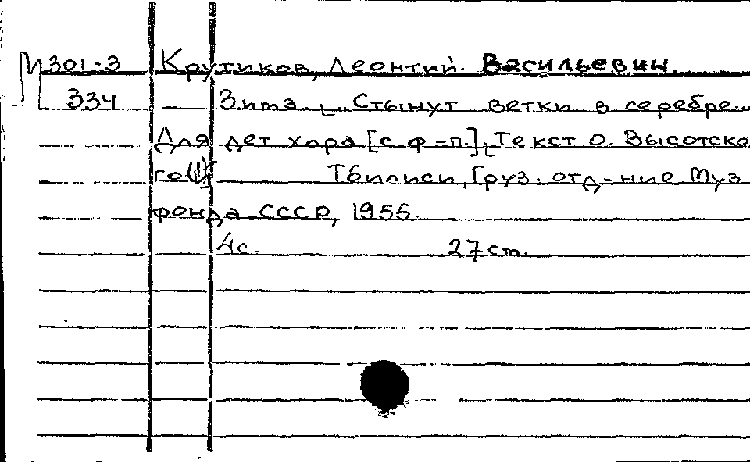 М301-3 Крутиков, Леонтий Васильевич.
334 Зима. Стынут ветки в серебре...
Для дет хора [с ф-п.]. Текст О. Высотско
го Тбилиси, Груз. отд-ние Муз
фонда СССР, 1955.
4с. 27 см.